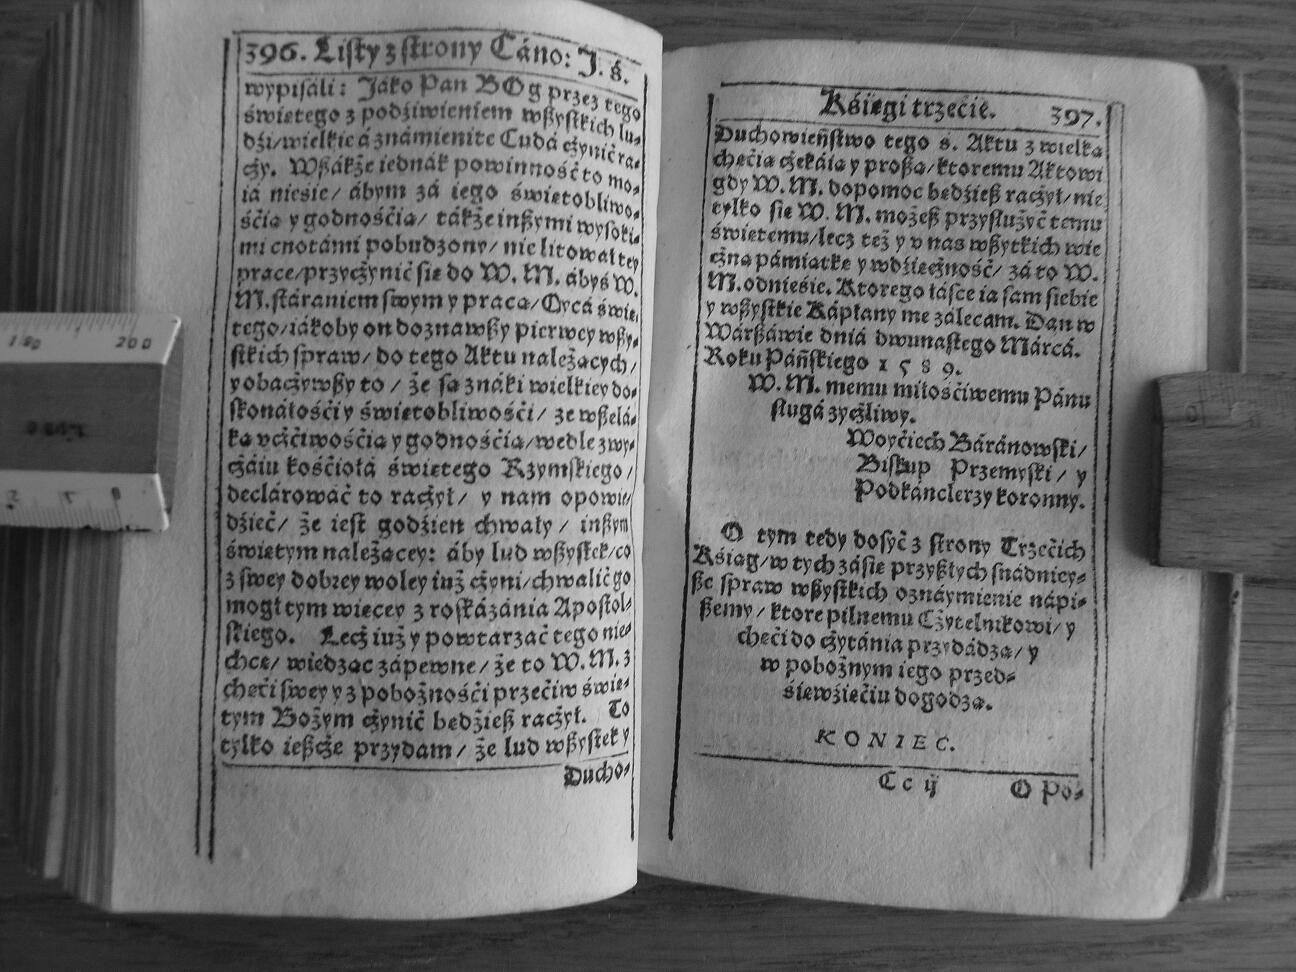 396. Listy z strony Cáno: J. ś.
wypisáli: Jáko Pan BOg przez tego
świetego z podźiwieniem wßystkich lu-
dźi/wielkie á známienite Cudá cżynić ra-
cży. Wßákże iednák powinność to mo-
ia niesie/ ábym zá iego świetobliwo-
śćia y godnośćia/ tákże inßymi wysoki-
mi cnotámi pobudzony/ nie litował tey
prace/przycżynić sie do W. M. ábyś W.
M. stárániem swym y praca/Oycá świe-
tego/iákoby on doznawßy pierwey wßy-
stkich spraw/ do tego Aktu należacych/
y obacżywßy to/ że sa znáki wielkiey do-
skonáłośći y świetobliwośći/ że wßelá-
ka vcżćiwośćia y godnośćia/wedle zwy-
cżáiu kośćiołá świetego Rzymskiego/
declárowáć to racżył/ y nam opowie-
dźieć/ że iest godźien chwały/ inßym
świetym należacey: áby lud wßystek/co
z swey dobrey woley iuż cżyni/chwalić go
mogł tym wiecey z roskázánia Apostol-
skiego. Lecż iuż y powtarzáć tego nie-
chce/ wiedzac zápewne/ że to W. M. z
cheći swey y z pobożnośći przećiw świe-
tym Bożym cżynić bedźieß racżył. To
tylko ießcże przydam/ że lud wßystek y
Ducho-
Kśięgi trzećie. 397.
Duchowieństwo tego ś. Aktu z wielka
chećia cżekáia y proßa/ktoremu Aktowi
gdy W. M. dopomoc bedźieß racżył/nie
tylko sie W. M. możeß przysłużyć temu
świetemu/lecz też y v nas wßytkich wie
cżna pámiatke y wdźiecżność/ zá to W.
M. odnieśie. Ktorego łásce ia sam siebie
y wßystkie Kápłany me zálecam. Dan w
Wárßáwie dniá dwunastego Márcá.
Roku Páńskiego 1589.
W. M. memu miłośćiwemu Pánu
sługá zycżliwy.
Woyćiech Báránowski/
Biskup Przemyski/ y
Podkánclerzy koronny.
O tym tedy dosyć z strony Trzećich
Kśiag/w tych záśie przyßłych snádniey-
ße spraw wßystkich oznáymienie nápi-
ßemy/ ktore pilnemu Cżytelnikowi/ y
cheći do cżytánia przydádza/ y
w pobożnym iego przed-
śiewźiećiu dogodza.
KONIEC.
Cc ij O Po-
180 200